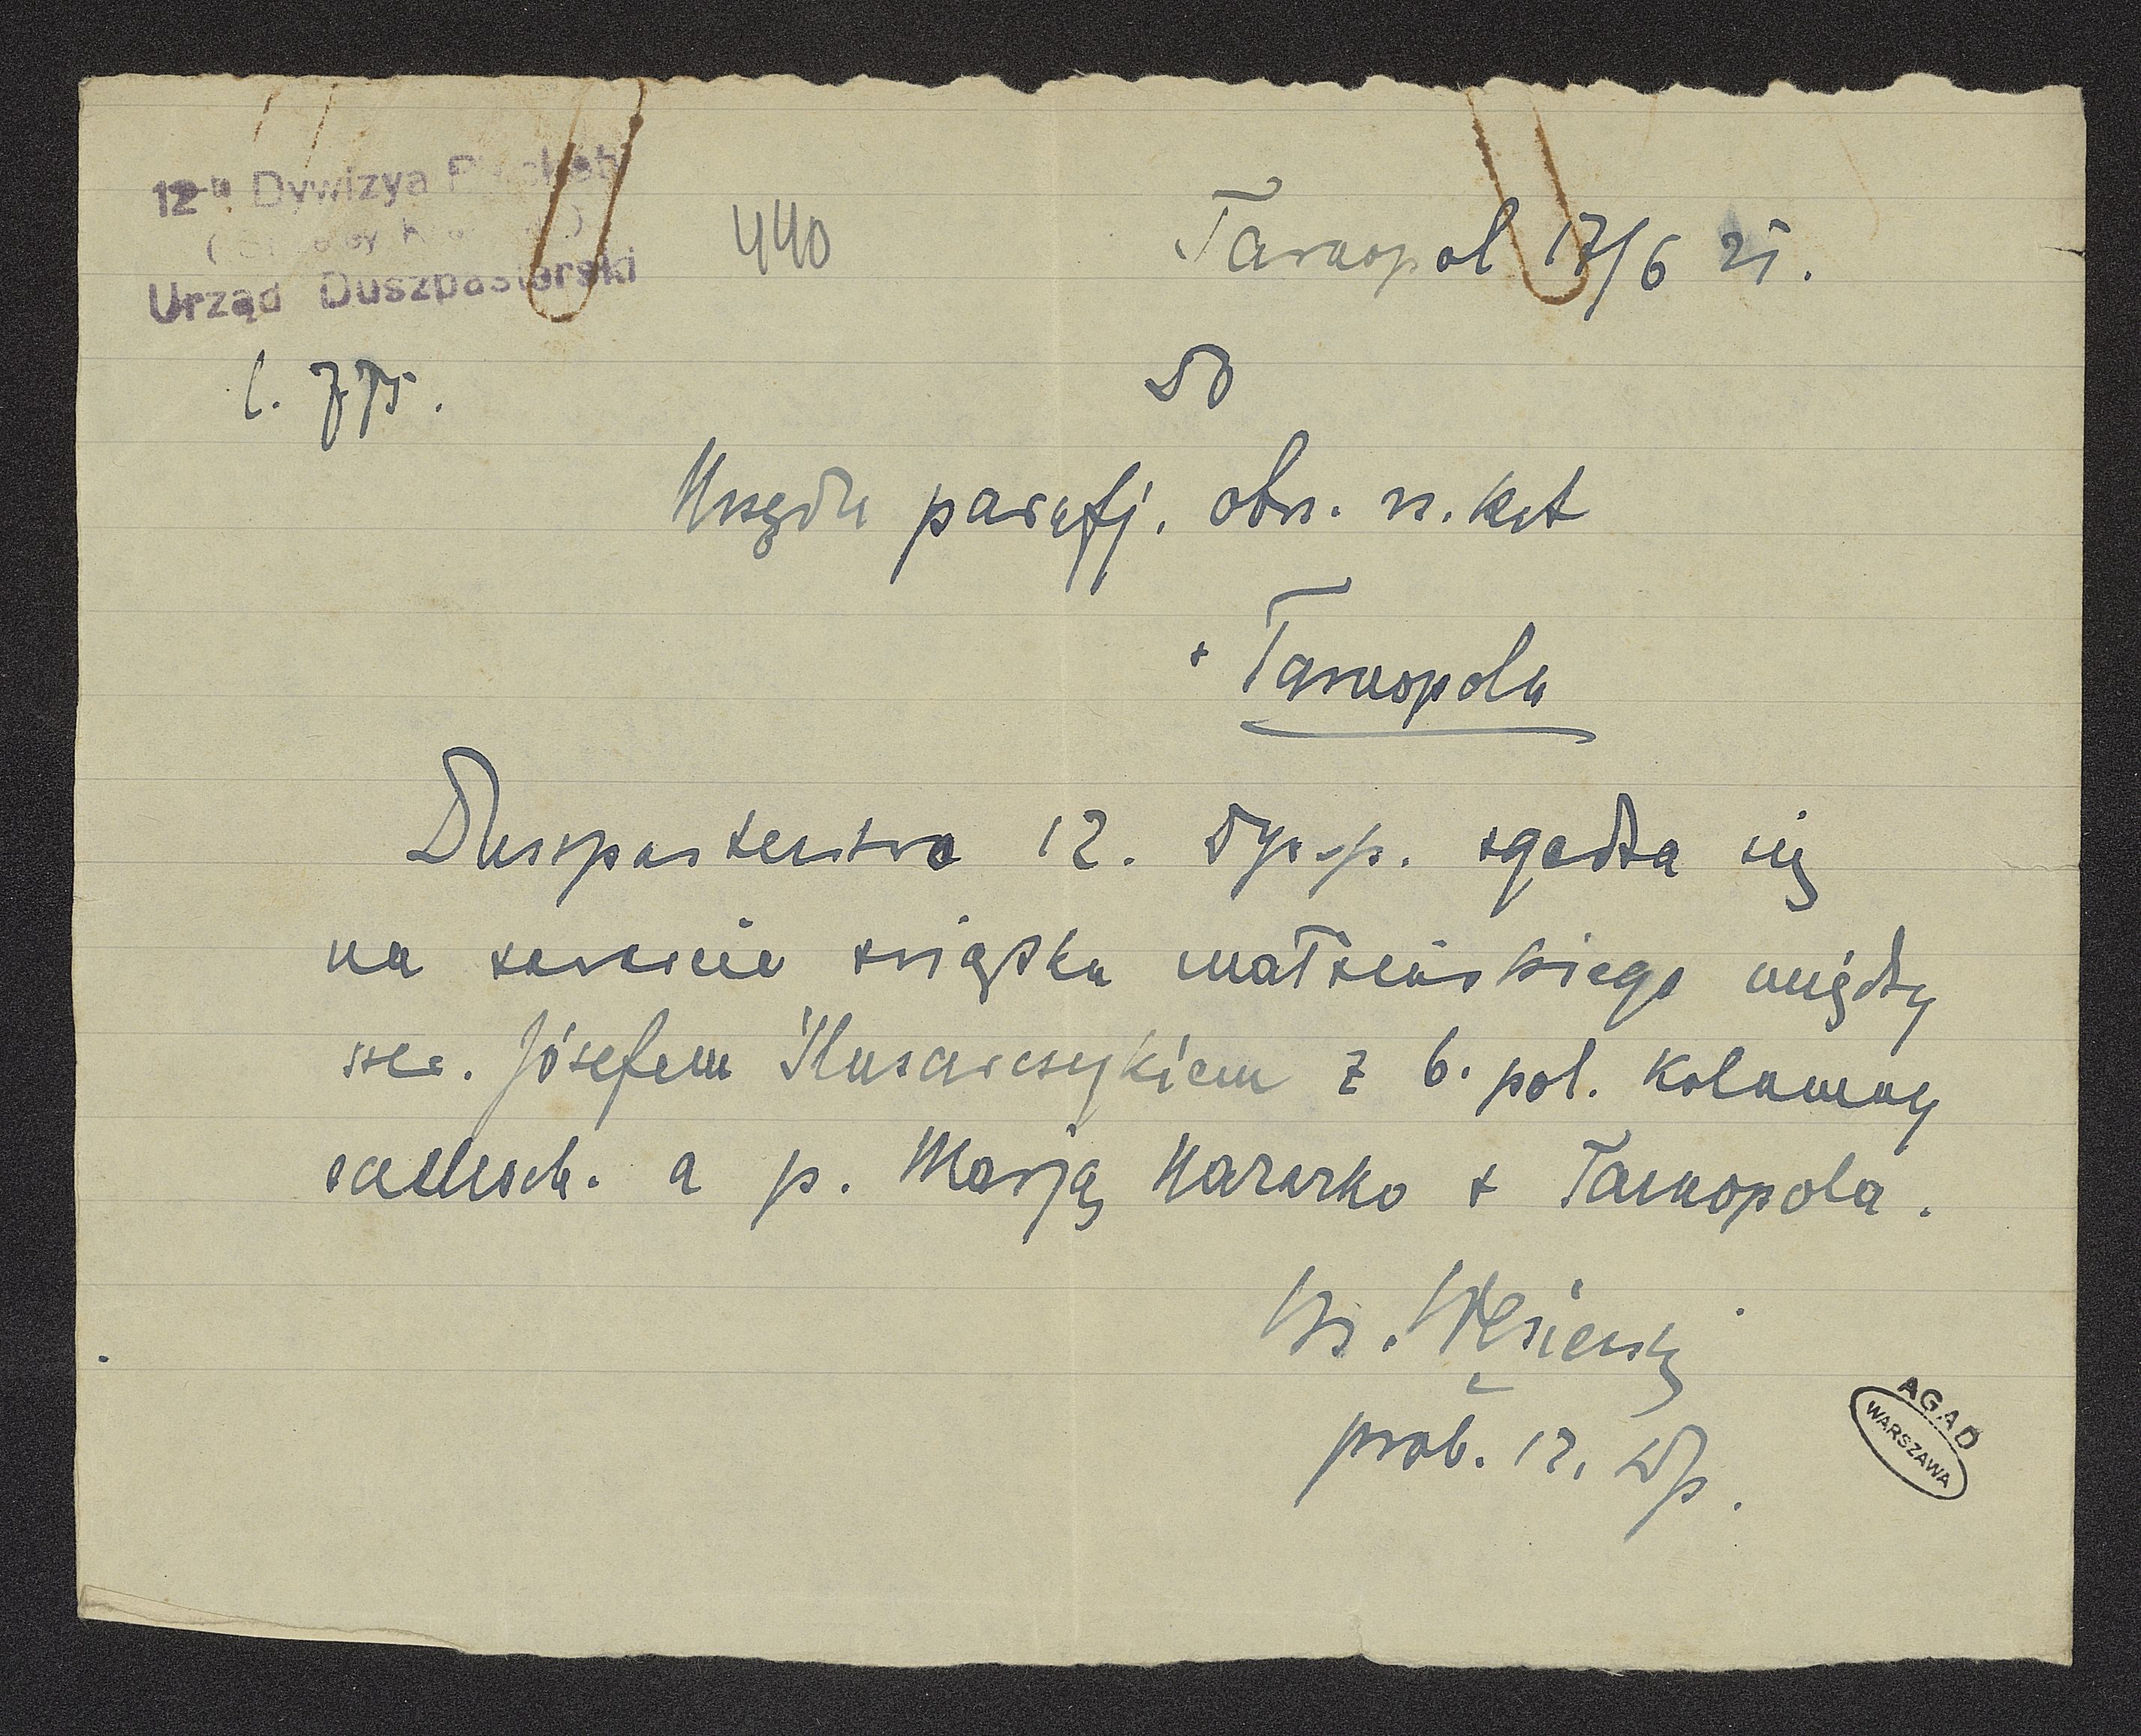 12-a Dywizya Piechoty
Urząd Duszpasterski
440
Tarnopol 17/6 21.
l. 775.
Do
Urzędu parafj. obrz. rz. kat
z Tarnopola
Duszpasterstwo 12. dyw. p. zgadza się
na zawarcie związku małżeńskiego między
szer. Józefem Ślusarczykiem z 6. pol. kolumny
a p. Marją Nazarko z Tarnopola.
Ks.
prob. 12. Dp.
AGAD
WARSZAWA